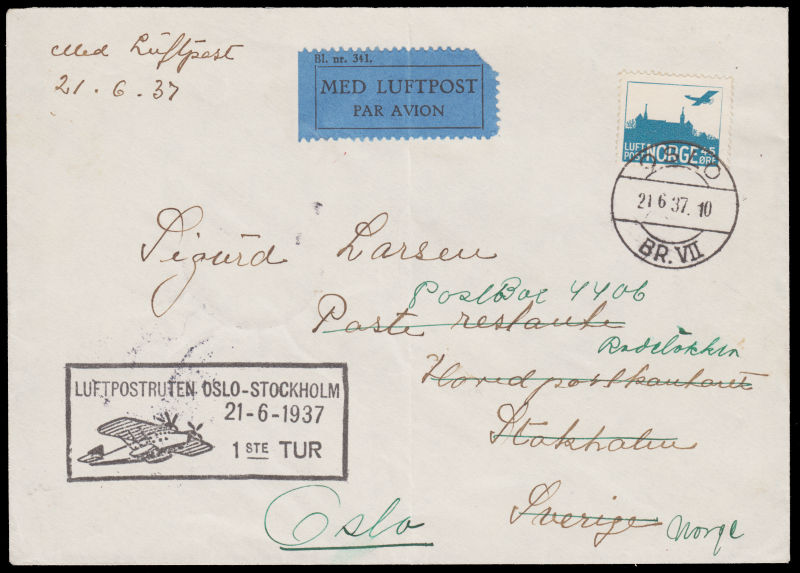 Med Luftpost
21.6.37
Bl. nr. 341.
MED LUFTPOST
PAR AVION
LUFT POST NORGE 45 ØRE
OSLO
21 6 37. 10
BR. VII
Sigurd Larsen
PostBox 4406
Poste restante
Rodeløkken
Hovedpostkontoret
Stokholm
Sverige Norge
Oslo
LUFTPOSTRUTEN OSLO-STOCKHOLM
21-6-1937
1 STE TUR